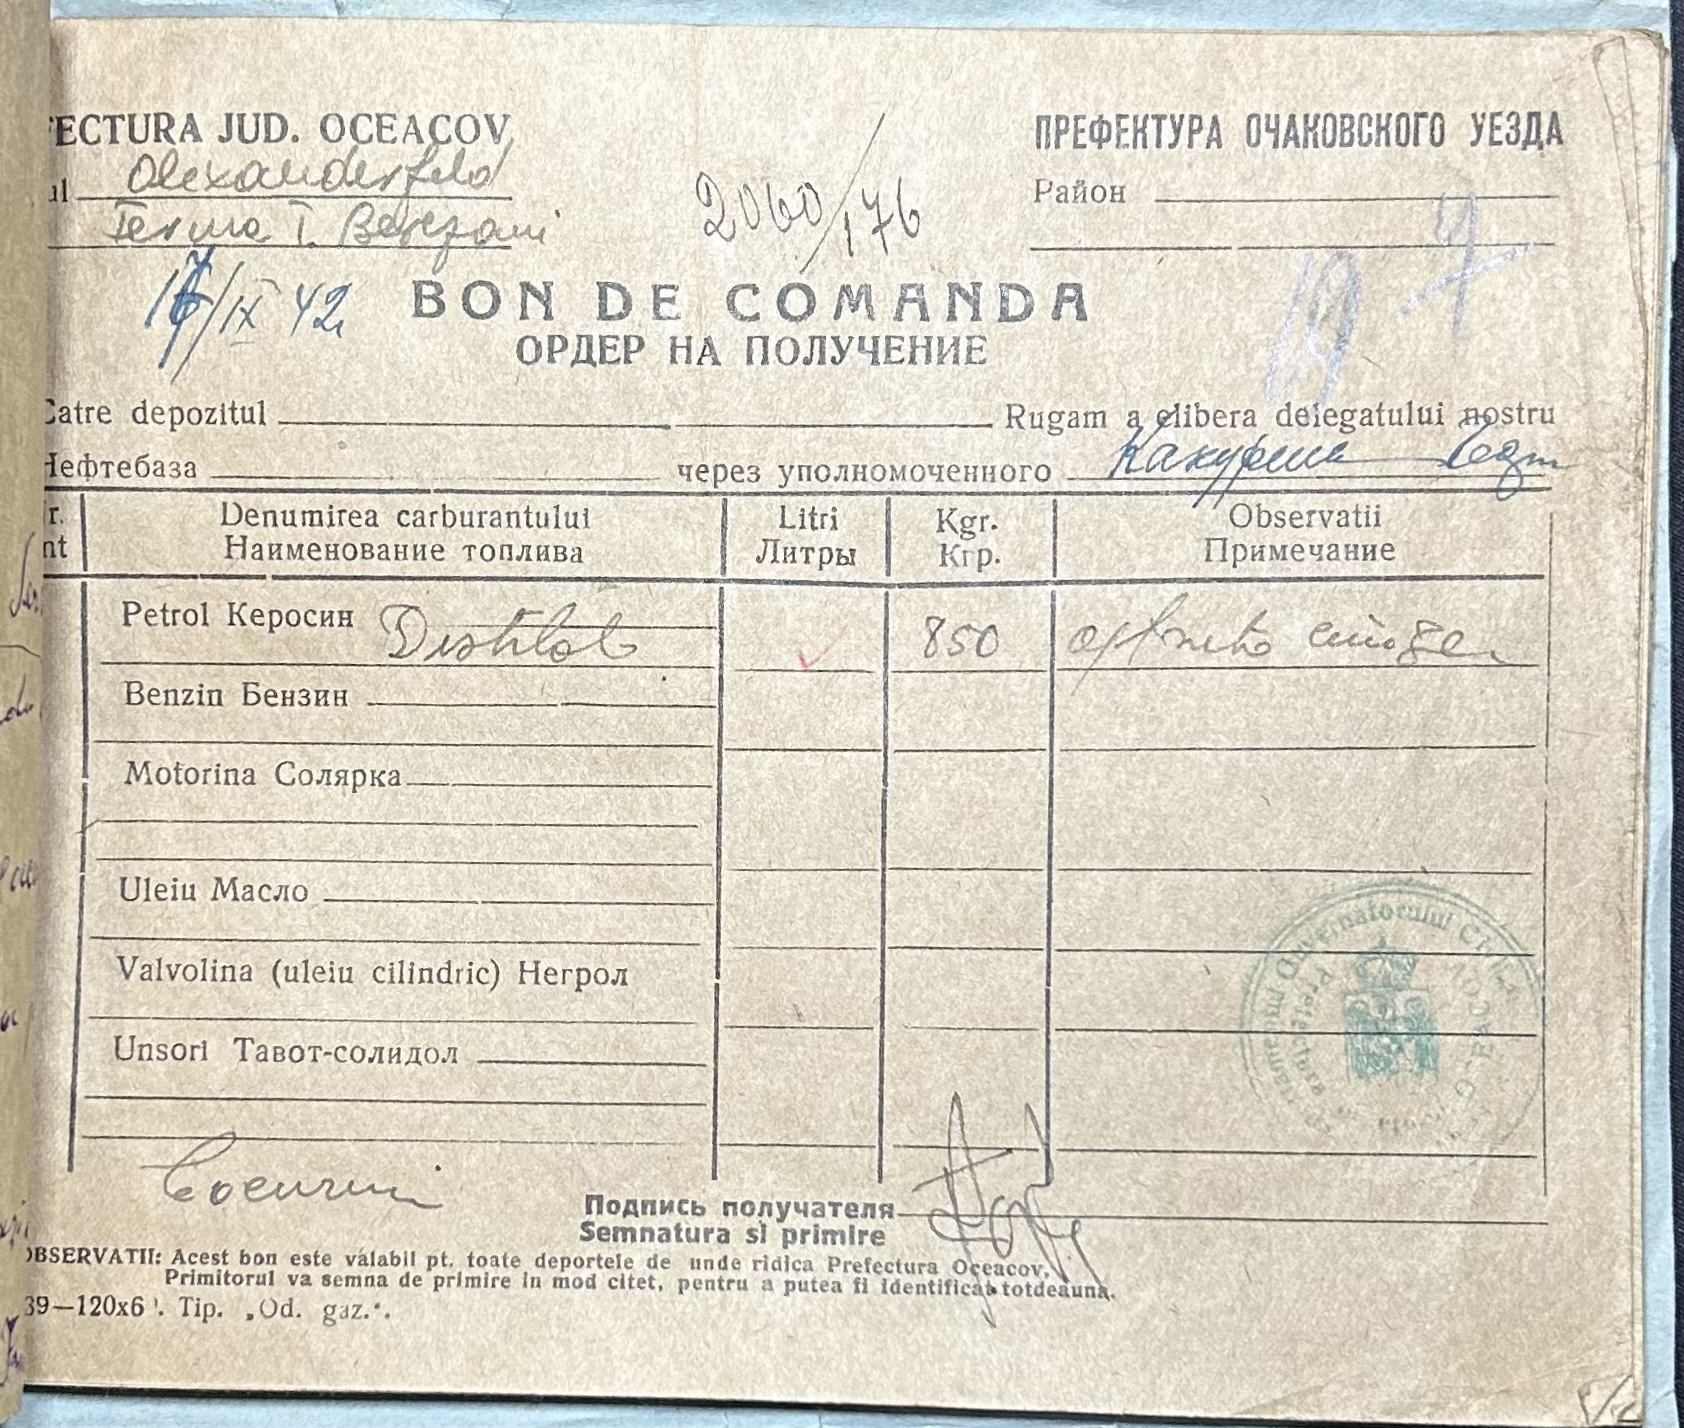 ECTURA JUD. OCEACOV
ПРЕФЕКТУРА ОЧАКОВСКОГО УЕЗДА
ul Alexanderfeld
2060/176
Район
Ferma T. Berezani
19
17/IX 42
BON DE COMANDA
ОРДЕР НА ПОЛУЧЕНИЕ
Catre depozitul
Rugam a elibera delegatului nostru
Нефтебаза
через уполномоченного
r.
nt
Denumirea carburantului
Наименование топлива
Litri
Литры
Kgr.
Кгр.
Observatii
Примечание
Petrol Керосин Distilat
850
Benzin Бензин
Motorina Солярка
Uleiu Масло
Valvolina (uleiu cilindric) Негрол
Unsori Тавот-солидол
Guvernatorului
Подпись получателя
Semnatura si primire
OBSERVATII: Acest bon este valabil pt. toate deportele de unde ridica Prefectura Oceacov.
Primitorul va semna de primire in mod citet, pentru a putea fi identificat totdeauna.
39—120x6 . Tip. „Od. gaz.".